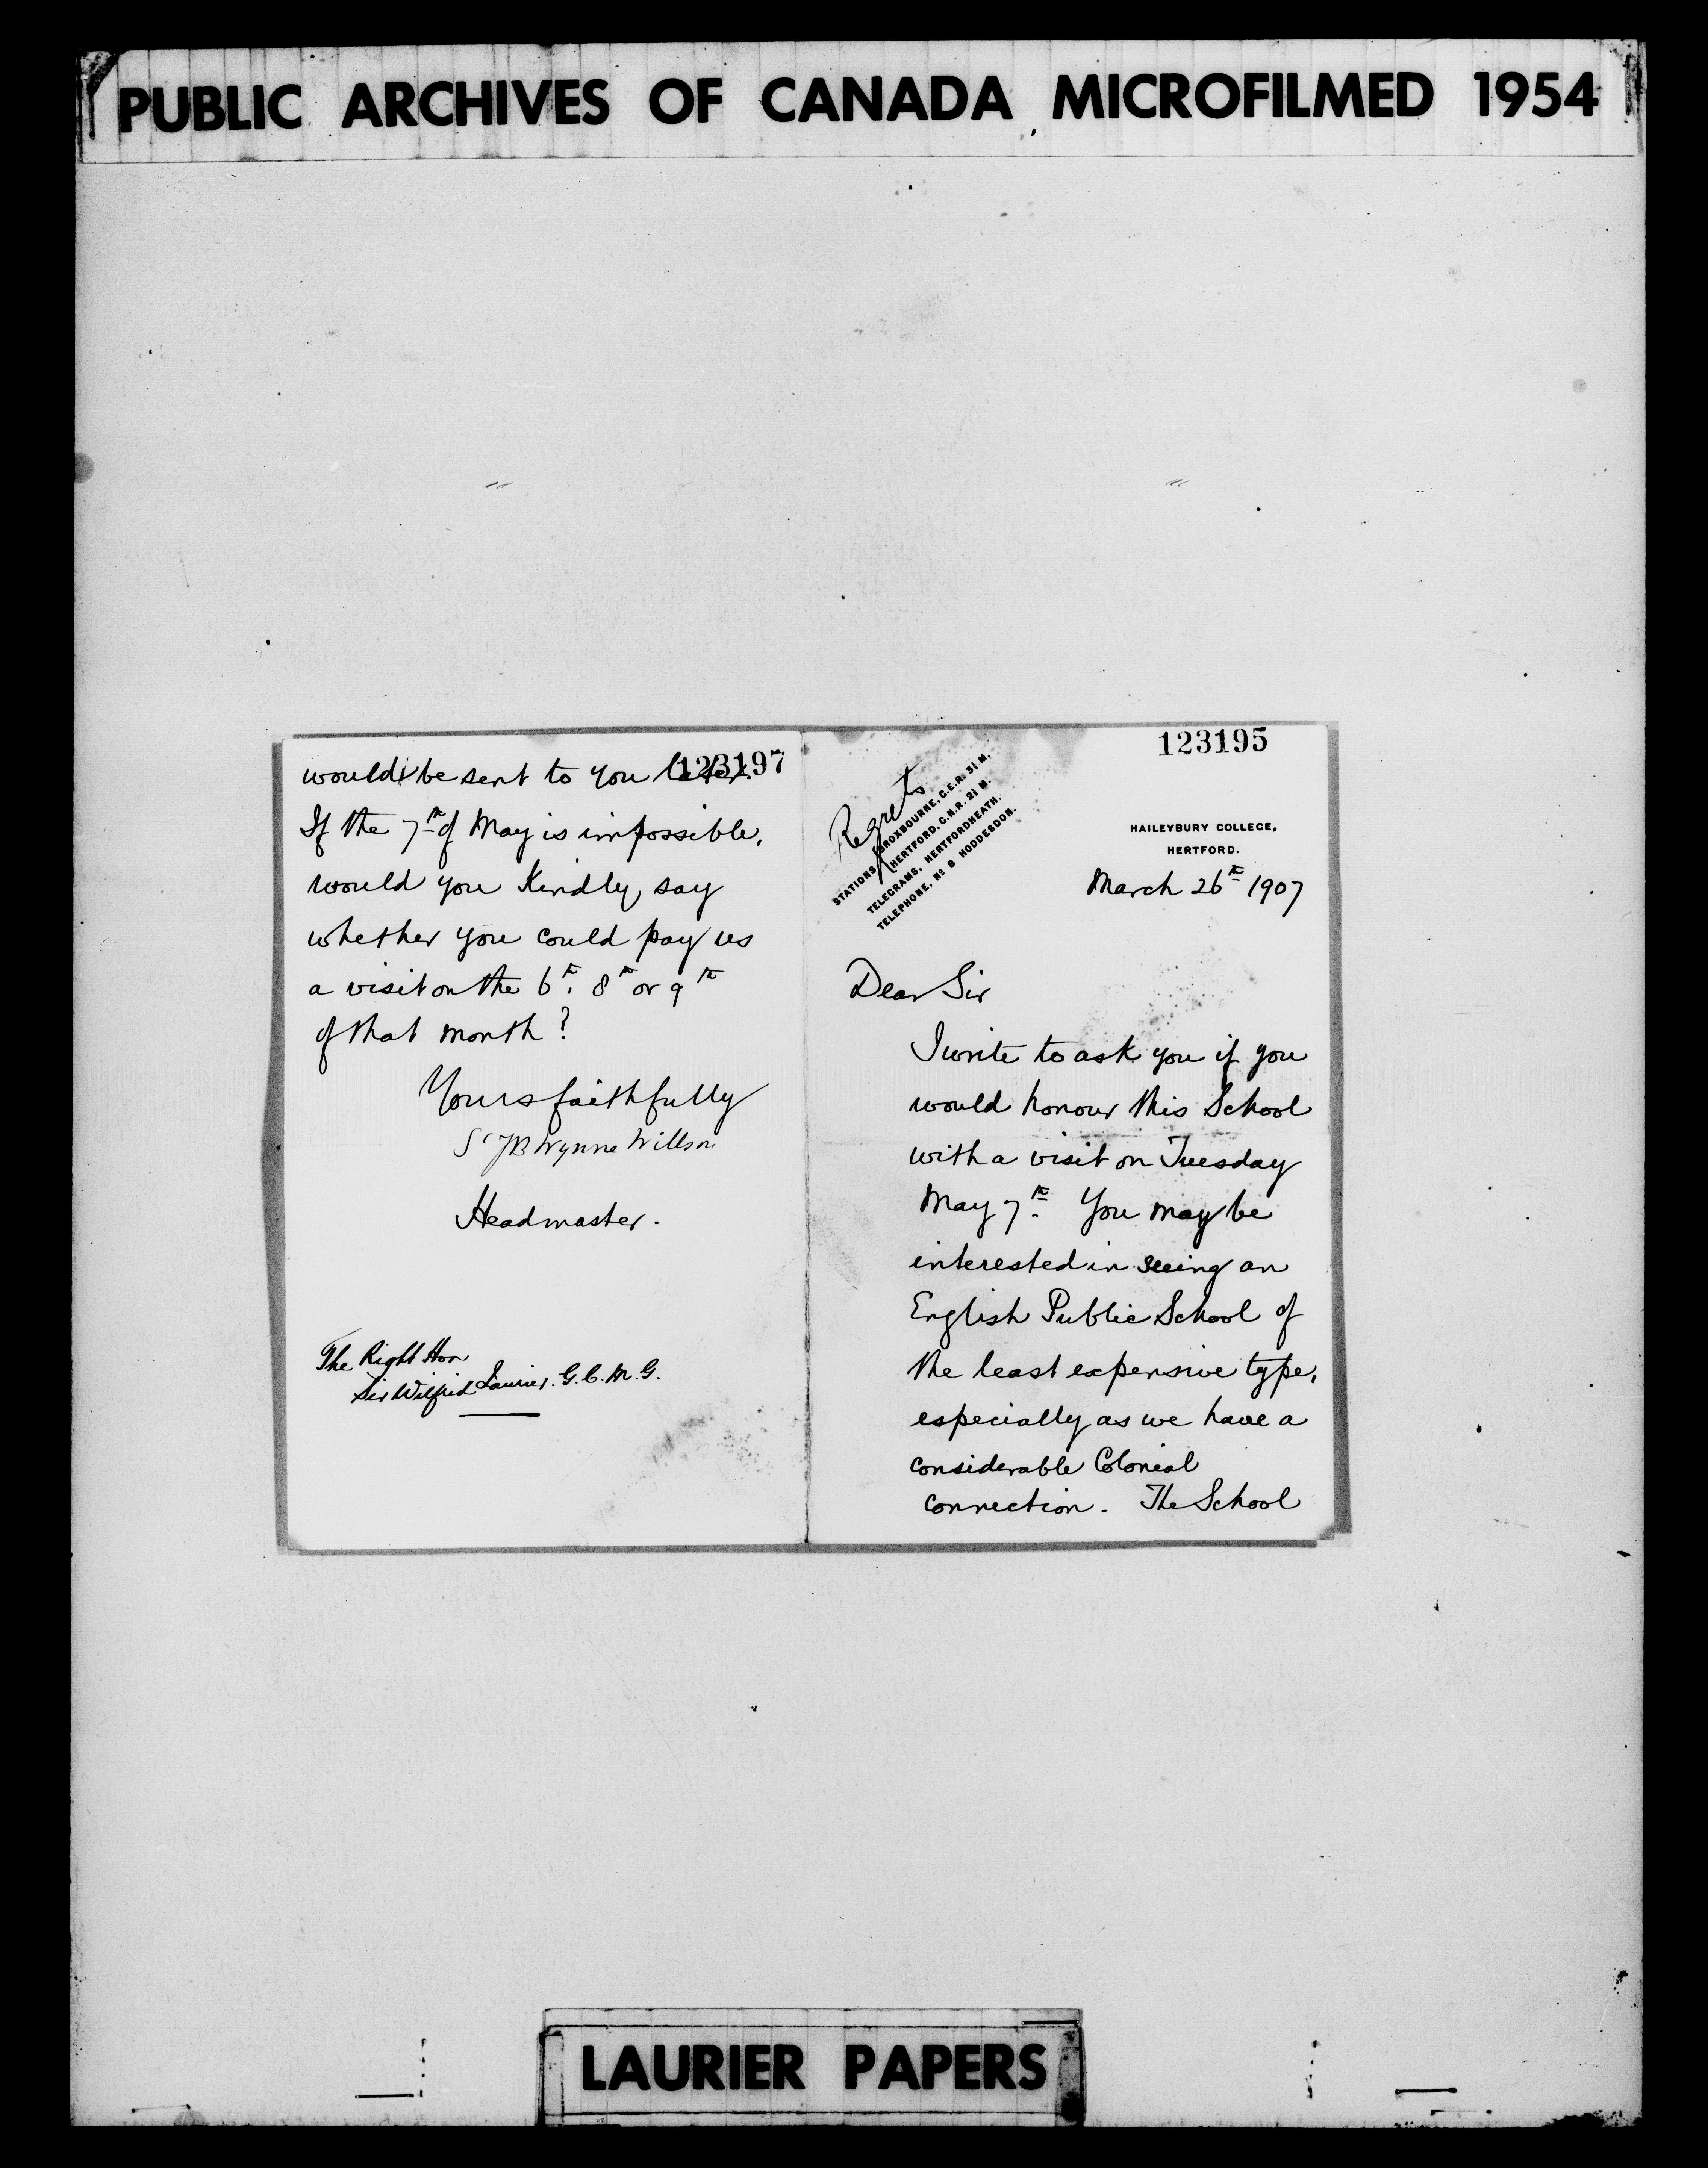 PUBLIC ARCHIVES OF CANADA MICROFILMED 1954
123197
would be sent to you later.
If the 7th of May is impossible,
would you kindly say
whether you could pay us
a visit on the 6th, 8th or 9th
of that month?
Yours faithfully
St JB Wynne Willson
Headmaster.
The Right Hon
Sir Wilfrid Laurier. G.C.M.G.
123195
Regrets
STATIONS BROXBOURNE, G.E.R. 3½ M.
HERTFORD, G.N.R. 2½ M.
TELEGRAMS, HERTFORDHEATH.
TELEPHONE, No 8 HODDESDON.
HAILEYBURY COLLEGE,
HERTFORD.
March 26th 1907
Dear Sir
I write to ask you if you
would honour this School
with a visit on Tuesday
May 7th. You may be
interested in seeing an
English Public School of
the least expensive type,
especially as we have a
considerable Colonial
connection. The School
LAURIER PAPERS